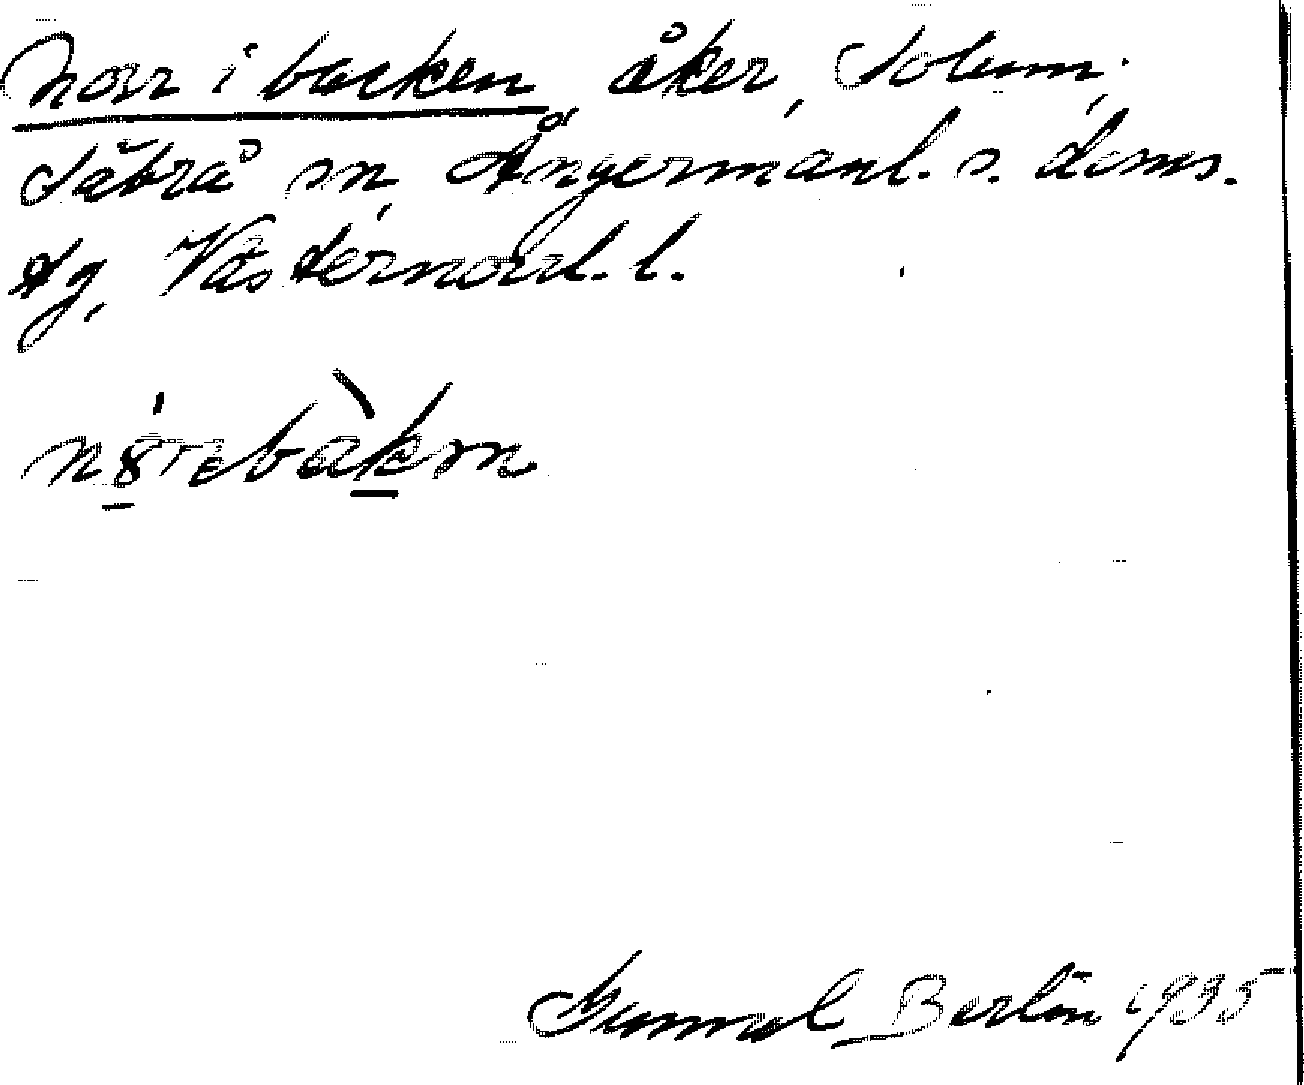 Norr i backen åker, Solum,
Säbrå sn, Ångermanl. s. doms.
tg, Västernorrl. l.
Gunnal Berlin 1935